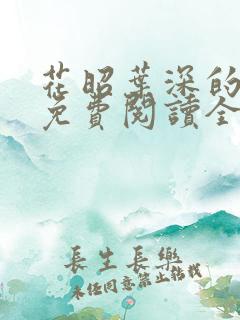 花昭葉深的
免費閱讀全
長生長樂
未任同意禁止轉載